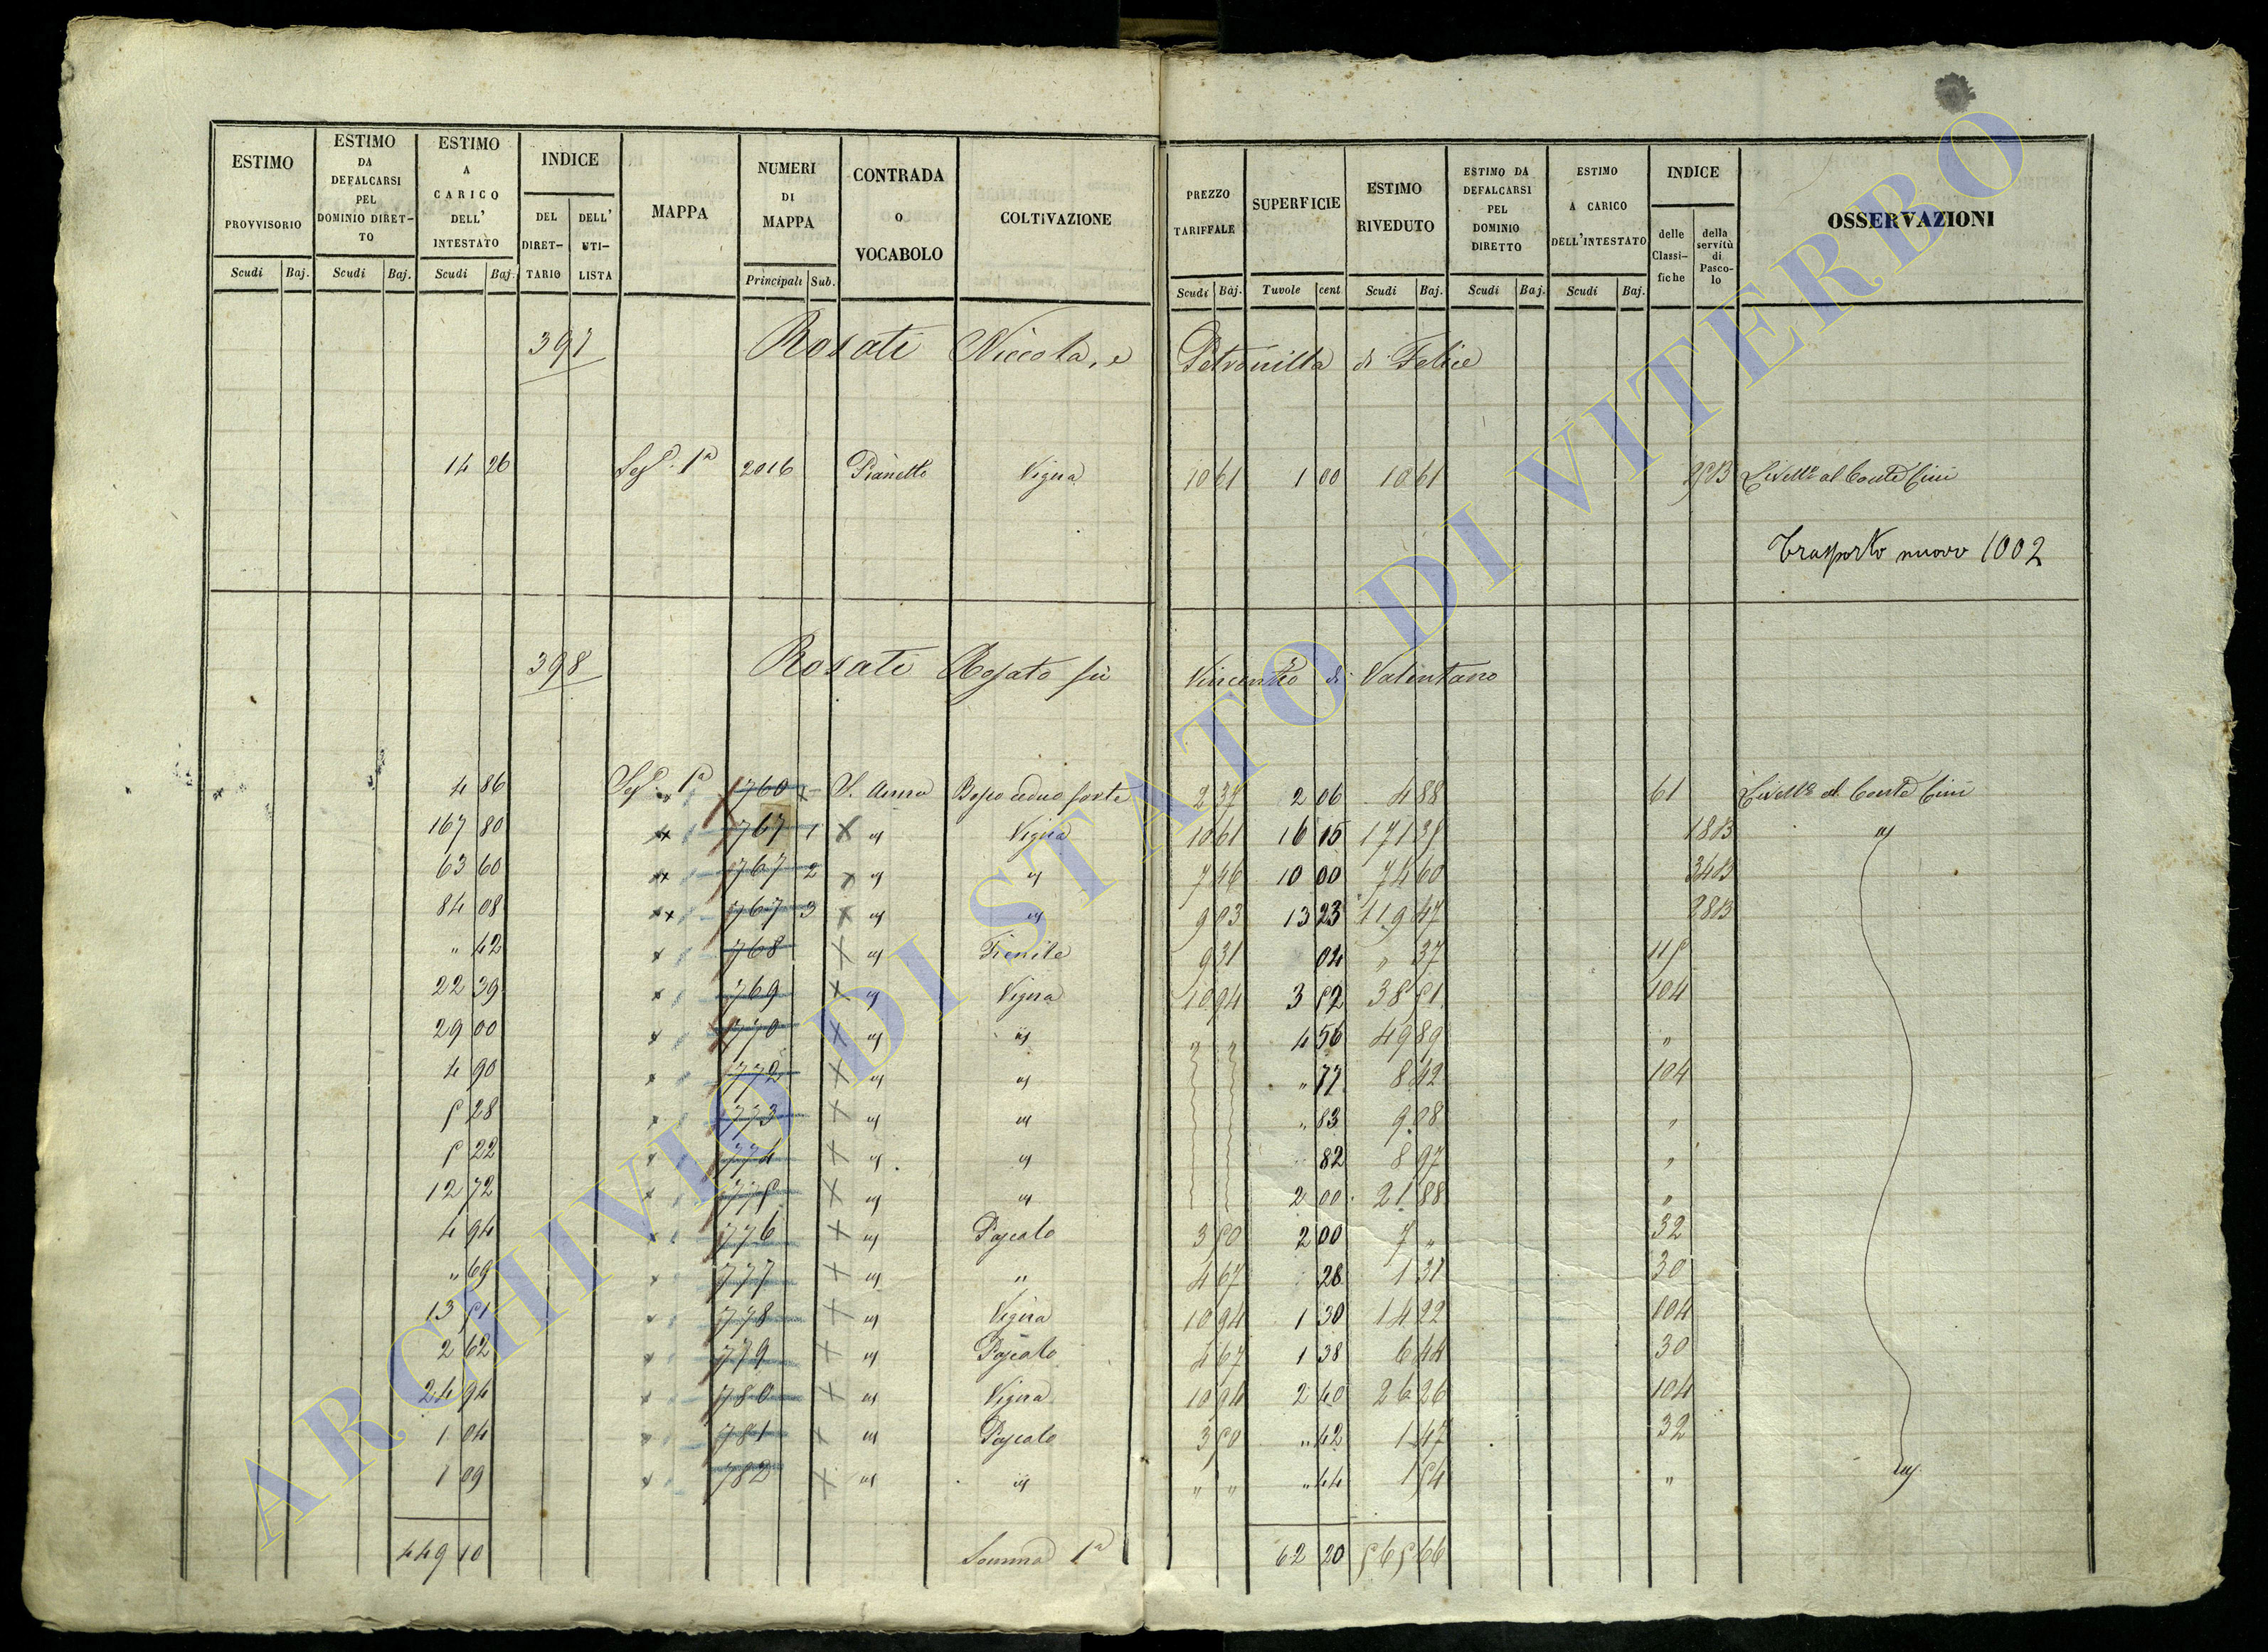 ESTIMO PROVVISORIO Scudi Baj.
ESTIMO DA DEFALCARSI PEL DOMINIO DIRET-TO Scudi Baj.
ESTIMO A CARICO DELL' INTESTATO Scudi Baj.
INDICE DEL DIRET-TARIO DELL' UTI-LISTA
MAPPA
NUMERI DI MAPPA Principali Sub.
CONTRADA o VOCABOLO
COLTIVAZIONE
PREZZO TARIFFALE Scudi Baj.
SUPERFICIE Tavole cent
ESTIMO RIVEDUTO Scudi Baj.
ESTIMO DA DEFALCARSI PEL DOMINIO DIRETTO Scudi Baj.
ESTIMO A CARICO DELL'INTESTATO Scudi Baj.
INDICE delle Classi-fiche della servitù di Pasco-lo
OSSERVAZIONI
397 Rosati Niccola, e Petronilla di Felice
14 26 Sez. 1a 2016 Pianetto Vigna 10 61 1 00 10 61 Livello al Conte Cini
Trasporto nuovo 1002
398 Rosati Agato fu Vincenzo di Valentano
4 86 Sez. 1a 760 S. Anna Bosco ceduo forte 2 37 2 06 4 88 61 Livello al Conte Cini
167 80 767 1 Vigna 10 61 16 15 171 35 18B
63 60 767 2 7 46 10 00 74 60 34B
84 08 767 3 9 03 13 23 119 47 28B
" 42 768 Fienile 9 31 04 " 37 115
22 39 769 Vigna 10 94 3 52 38 51 104
29 00 770 4 56 49 89 "
4 90 772 " 77 8 42 104
5 28 773 " 83 9 08 "
5 22 774 82 8 97 "
12 72 775 2 00 21 88 "
4 94 776 Pascolo 3 50 2 00 7 " 32
" 69 777 " 4 67 28 1 31 30
13 51 778 Vigna 10 94 1 30 14 22 104
2 62 779 Pascolo 4 67 1 38 6 44 30
24 94 780 Vigna 10 94 2 40 26 26 104
1 04 781 Pascolo 3 50 " 42 1 47 32
1 09 782 " " " 44 1 54 "
449 10 Somma 1a 62 20 565 66
ARCHIVIO DI STATO DI VITERBO